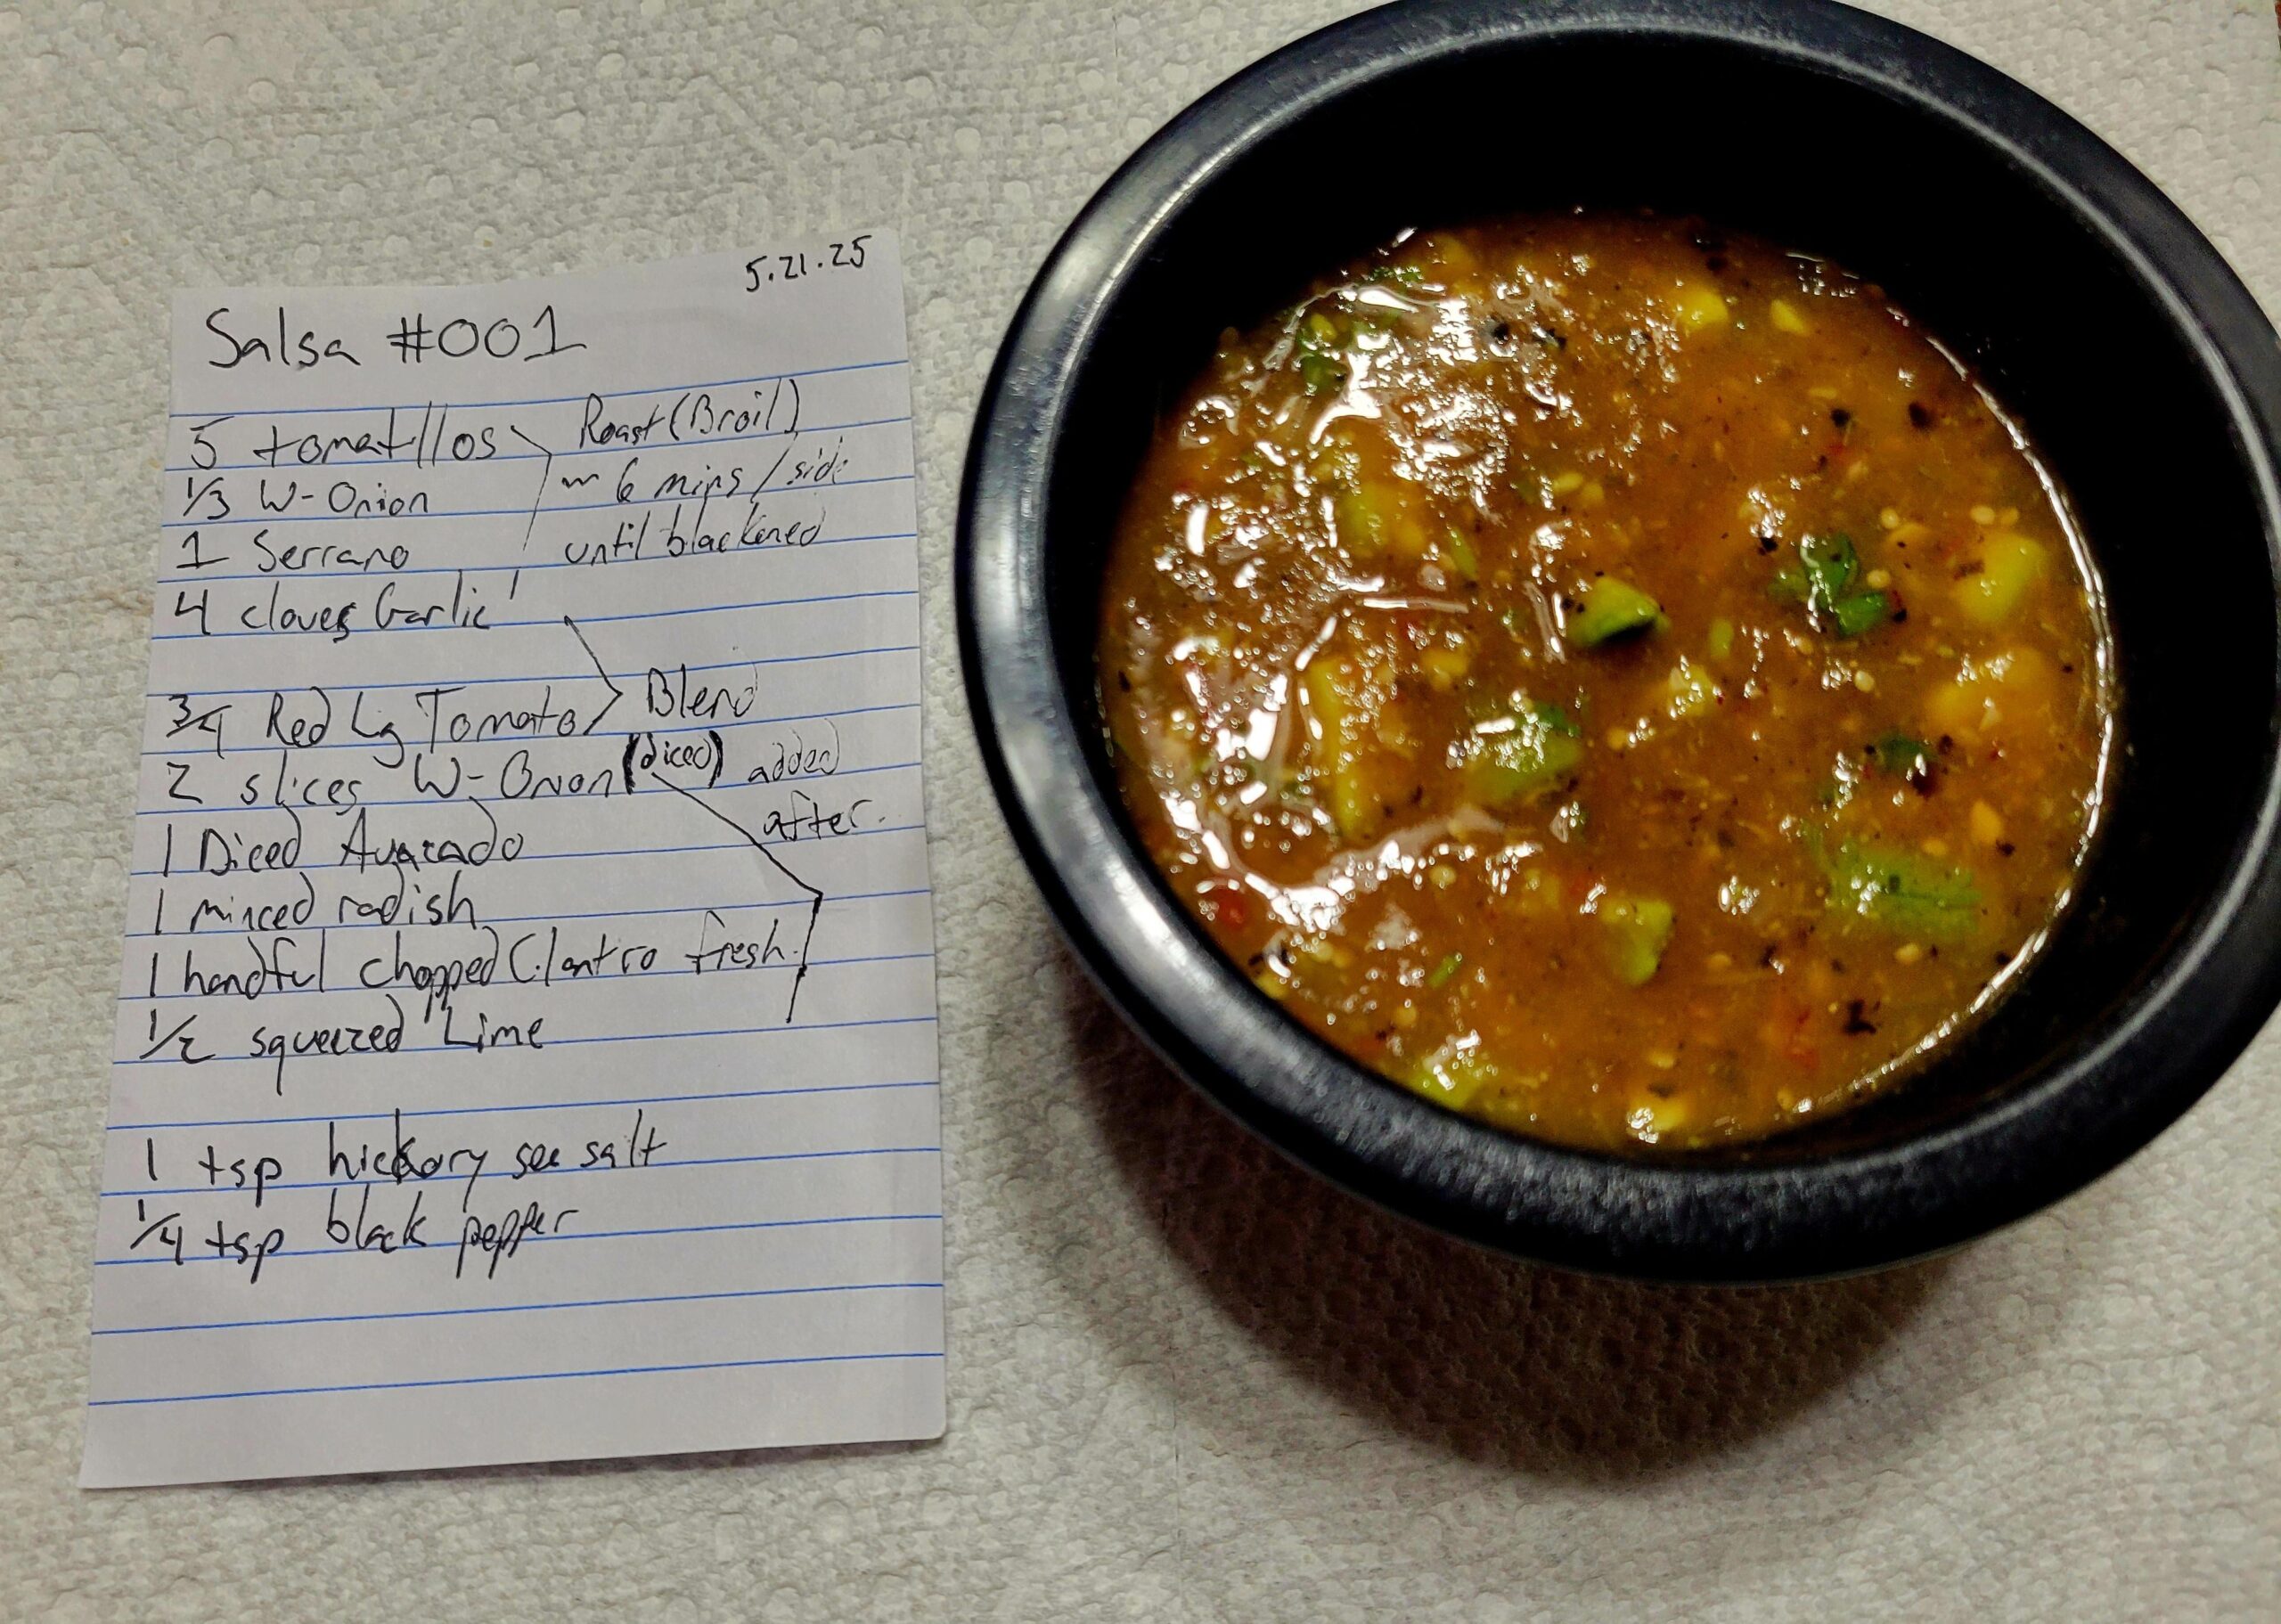 5.21.25
Salsa #001
5 tomatillos Roast (Broil)
1/3 W-Onion ~ 6 mins / side
1 Serrano until blackened
4 cloves Garlic
3/4 Red Lg Tomato Blend
2 slices W-Onion (diced) added
after.
1 Diced Avacado
1 minced radish
1 handful chopped Cilantro fresh.
1/2 squeezed Lime
1 tsp hickory sea salt
1/4 tsp black pepper